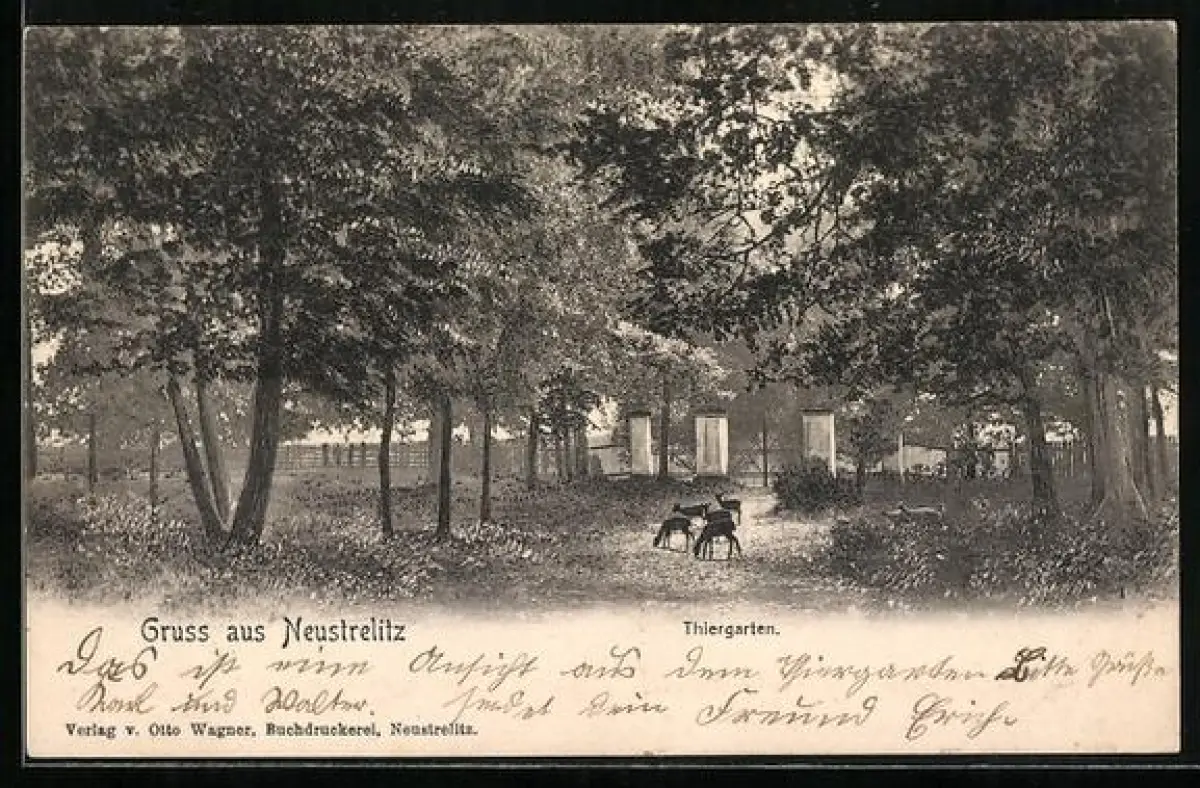 Gruss aus Neustrelitz
Thiergarten.
Das ist eine Ansicht aus dem Thiergarten Bitte Grüße
Karl und Walter. sendet dein Freund Erich.
Verlag v. Otto Wagner, Buchdruckerei, Neustrelitz.